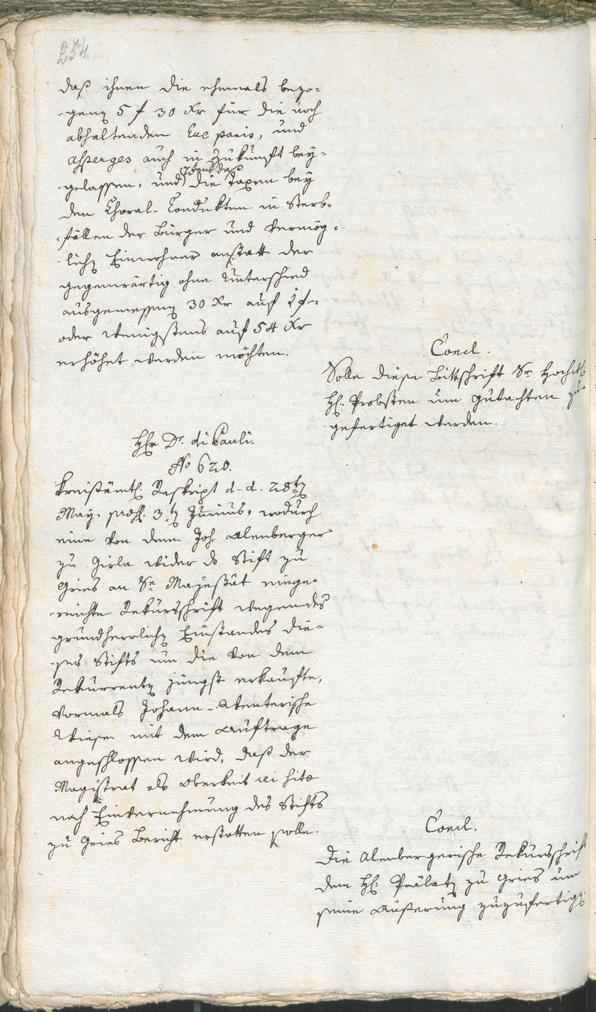 254
daß ihnen die ehemals bezo-
gene 5 f 30 Xr für die noch
abhaltenden Euc paris, und
asperges auch in Zukunft bey-
gelassen, und die Taxen bey
den Choral-Condukten in Sterb-
fällen der Bürger und vermög-
lich Einwohner anstatt der
gegenwärtig ohne Unterschied
ausgemessenen 30 Xr auf 1 f-
oder wenigstens auf 54 Xr
erhöhet werden möchten.
Concl.
Solle diese Bittschrift Sr Hochw
H: Probsten um Gutachten zu
gefertiget werden.
Hr Dr. di Pauli.
No 620.
Kreisämtl Reskript d. d. 28t
May, praes. 3t Junius, wodurch
eine von dem Joh Alenberger
zu Girla wider das Stift zu
Gries an Sr Majestät einge-
reichte Rekursschrift wegen des
grundherrlich Einstandes die-
ses Stifts um die von dem
Rekurrent jüngst erkaufte,
vormals Johann
Wiesen mit dem Auftrage
angeschlossen wird, daß der
Magistrat als Oberkeit rei sitæ
nach Einvernehmung des Stifts
zu Gries Bericht erstatten solle.
Concl.
Die Alenbergerische Rekursschrift
dem H: Prälat zu Gries um
seine Äußerung zuzufertig